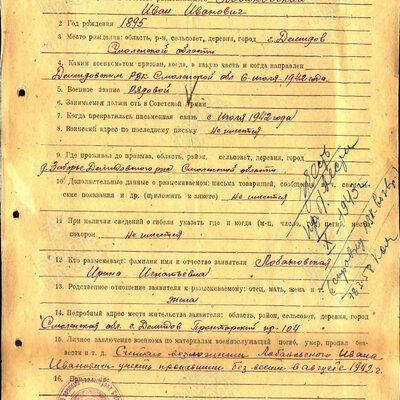 Иван Иванович
2. Год рождения 1895
3. Место рождения: область, р-н, сельсовет, деревня, город г. Демидов
Смоленской области
4. Каким военкоматом призван, когда, в какую часть и когда направлен
Демидовским РВК Смоленской обл 6-июля-1942 года.
5. Военное звание Рядовой
6. Занимаемая должность в Советской Армии
7. Когда прекратилась письменная связь с Июля 1942 года
8. Воинский адрес по последнему письму Не имеется
9. Где проживал до призыва, область, район, сельсовет, деревня, город
д. Заборье Демидовского р-на Смоленской области
10. Дополнительные данные о разыскиваемом: письма товарищей, сообщения
показания и др. (приложить к анкете) Не имеется
11. При наличии сведений о гибели указать где и когда (м-ц, число, место
похорон Не имеется
12. Кто разыскивает: фамилия имя и отчество заявителя Лобановская
Ирина Игнатьевна
13. Родственное отношение заявителя к разыскиваемому: отец, мать, жена и т.
жена
14. Подробный адрес места жительства заявителя: область, район, сельсовет, деревня, город
Смоленская обл. г. Демидов
15. Личное заключение военкома по материалам военнослужащий погиб, умер, пропал без
вести и т. д. Считаю возможным Лобановского Ивана
Ивановича учесть пропавшим без вести в августе 1942 г.
16. Приложение: